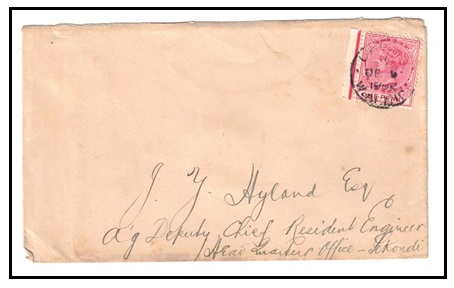 J. Y. Hyland Esq
A'g Deputy Chief Resident Engineer
Head Quarters Office -
ONE PENNY